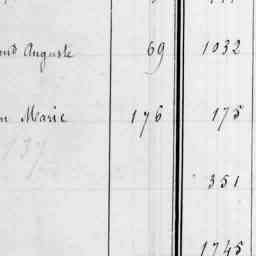 Auguste 69 1032
Marie 176 175
137
351
1745